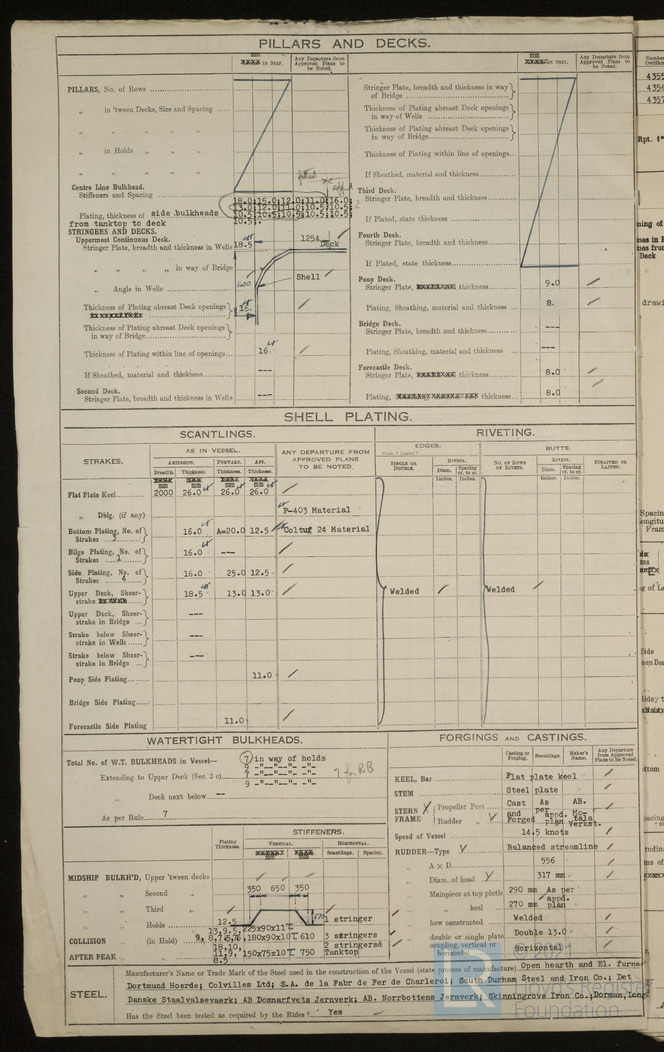 PILLARS AND DECKS.
mm
IN SHIP.
Any Departure from Approved Plans to be Noted.
PILLARS, No. of Rows
„ in 'tween Decks, Size and Spacing
„ „ „ „ „
„ in Holds „ „
„ „ „ „
Centre Line Bulkhead.
Stiffeners and Spacing
18.0;15.0;12.0;11.0;16.0;
13.0;12.0;11.0;10.5;10.5;
Plating, thickness of side bulkheads
10.5;10.5;10.5;10.5;10.5;
from tanktop to deck
10.5;
STRINGERS AND DECKS.
Uppermost Continuous Deck.
Stringer Plate, breadth and thickness in Wells
18.5
1254
Deck
„ „ „ „ in way of Bridge
„ Angle in Wells
1600
Shell
Thickness of Plating abreast Deck openings
16.
Thickness of Plating abreast Deck openings in way of Bridge
Thickness of Plating within line of openings
16
If Sheathed, material and thickness
---
Second Deck.
Stringer Plate, breadth and thickness in Wells
---
mm
IN SHIP.
Any Departure from Approved Plans to be Noted.
Stringer Plate, breadth and thickness in way of Bridge
Thickness of Plating abreast Deck openings in way of Wells
Thickness of Plating abreast Deck openings in way of Bridge
Thickness of Plating within line of openings
If Sheathed, material and thickness
Third Deck.
Stringer Plate, breadth and thickness
If Plated, state thickness
Fourth Deck.
Stringer Plate, breadth and thickness
If Plated, state thickness
Poop Deck.
Stringer Plate, thickness
9.0
Plating, Sheathing, material and thickness
8.
Bridge Deck.
Stringer Plate, breadth and thickness
---
Plating, Sheathing, material and thickness
---
Forecastle Deck.
Stringer Plate, thickness
8.0
Plating, thickness
8.0
SHELL PLATING.
SCANTLINGS.
RIVETING.
STRAKES.
AS IN VESSEL.
AMIDSHIPS.
FORWARD.
AFT.
Breadth.
Thickness.
Thickness.
Thickness.
ANY DEPARTURE FROM APPROVED PLANS TO BE NOTED.
EDGES.
SINGLE OR DOUBLE.
RIVETS.
Diam.
Spacing cr. to cr.
BUTTS.
NO. OF ROWS OF RIVETS.
RIVETS.
Diam.
Spacing cr. to cr.
STRAPPED OR LAPPED.
mm mm mm mm
Inches. Inches. Inches. Inches.
Flat Plate Keel
2000 26.0 26.0 26.0
„ Dblg. (if any)
P-403 Material
Bottom Plating, No. of Strakes 3
16.0 A=20.0 12.5
Coltuf 24 Material
Bilge Plating, No. of Strakes 1
16.0 ---
Side Plating, No. of Strakes 4
16.0 25.0 12.5
Upper Deck, Sheer-strake
18.5 13.0 13.0
Welded
Welded
Upper Deck, Sheer-strake in Bridge
---
Strake below Sheer-strake in Wells
---
Strake below Sheer-strake in Bridge
---
Poop Side Plating
11.0
Bridge Side Plating
Forecastle Side Plating
11.0
WATERTIGHT BULKHEADS.
Total No. of W.T. BULKHEADS in Vessel—
7 in way of holds
9 -"--"--"- -"-
Extending to Upper Deck (Sec. 3 c)
7 -"--"--"- -"-
9 -"--"--"- -"-
7 for RB
„ Deck next below
--
As per Rule
7
Plating Thickness.
STIFFENERS.
VERTICAL.
HORIZONTAL.
Scantlings.
Spacing.
MIDSHIP BULKH'D, Upper 'tween decks
„ „ Second „
350 650 350
„ „ Third „
„ „ Holds
12.5
1 stringer
13,9,5,
225x90x11
COLLISION „ (in Hold)
180x90x10 610
3 stringers
18,10,
2 stringers&
AFTER PEAK „ „
11,9,
150x75x10 750
Tanktop
8.5
FORGINGS AND CASTINGS.
Casting or Forging.
Scantlings.
Maker's Name.
Any Departure from Approved Plans to be Noted.
KEEL, Bar
Flat plate keel
STEM
Steel plate
STERN FRAME
Propeller Post
Rudder „
Cast and Forged
As per appd. plan
AB. Mo-fala Verkst.
Speed of Vessel
14.5 knots
RUDDER—Type
Balanced streamline
„ A × D
556
„ Diam. of head
317 mm
Mainpiece at top pintle
290 mm As per
„ heel
270 mm appd. plan
how constructed
Welded
double or single plate
Double 13.0
coupling, vertical or horizontal
Horizontal
STEEL.
Manufacturer's Name or Trade Mark of the Steel used in the construction of the Vessel (state process of manufacture). Open hearth and El. furna
Dortmund Hoerde; Colvilles Ltd; S.A. de la Fabr de Fer de Charleroi; South Durham Steel and Iron Co.; Det
Danske Staalvalsevaerk; AB Domnarfvets Jernverk; AB. Norrbottens Jernverk; Skinningrove Iron Co.; Dorman, Long
Has the Steel been tested as required by the Rules? Yes
© 2021
Lloyd's Register
Foundation
LR
4355
4356
4357